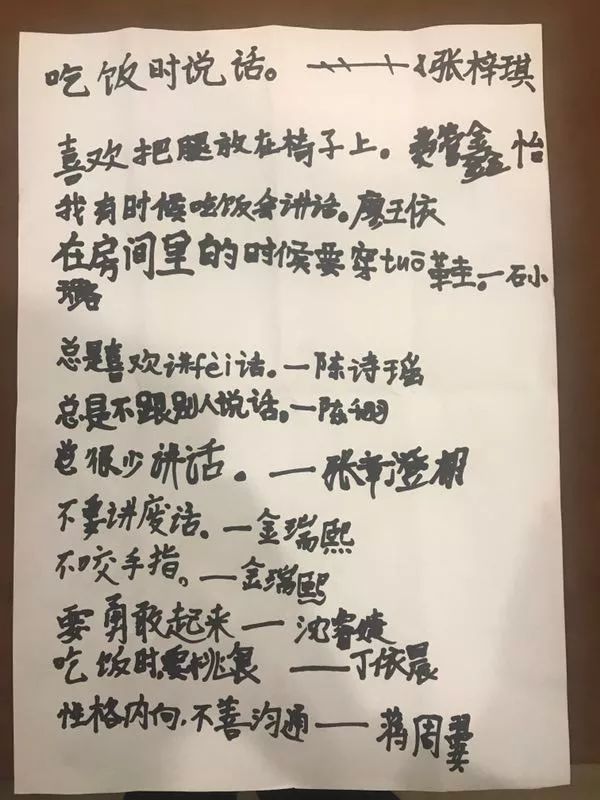 吃饭时说话。——张梓琪
喜欢把腿放在椅子上。费 鑫怡
我有时候吃饭会讲话。廖王依
在房间里的时候要穿tuō鞋。—石小
璐
总是喜欢讲fèi话。—陈诗瑶
总是不跟别人说话。—陈
也很少讲话。—张
不要讲废话。—金瑞熙
不咬手指。—金瑞熙
要勇敢起来—沈睿婕
吃饭时要挑食 ——丁依晨
性格内向,不善沟通——蒋周